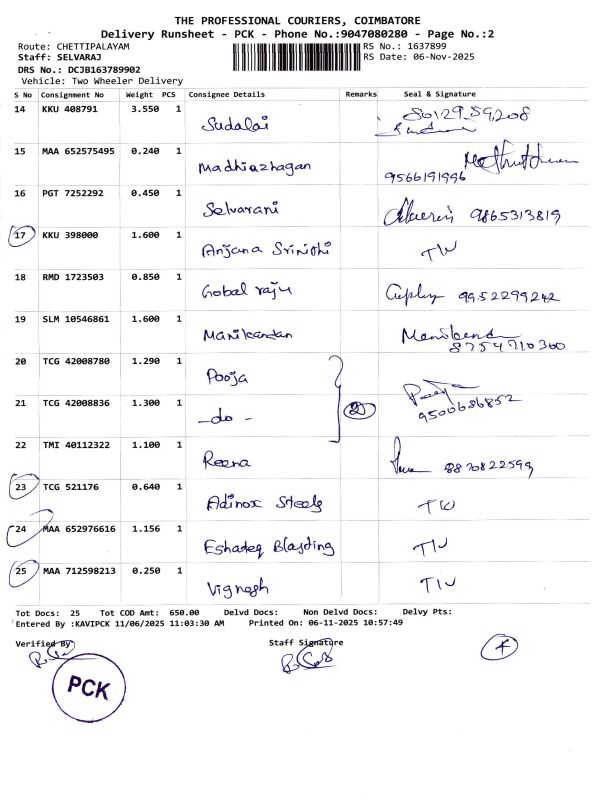 THE PROFESSIONAL COURIERS, COIMBATORE
Delivery Runsheet - PCK - Phone No.:9047080280 - Page No.:2
Route: CHETTIPALAYAM RS No.: 1637899
Staff: SELVARAJ RS Date: 06-Nov-2025
DRS No.: DCJB163789902
Vehicle: Two Wheeler Delivery
S No Consignment No Weight PCS Consignee Details Remarks Seal & Signature
14 KKU 408791 3.550 1 Sudalai
15 MAA 652575495 0.240 1 Madhiazhagan 9566191996
16 PGT 7252292 0.450 1 Selvarani 9865313819
17 KKU 398000 1.600 1 Anjana Srinithi TW
18 RMD 1723503 0.850 1 Gobal raju 9952299242
19 SLM 10546861 1.600 1 Manikandan 8754710300
20 TCG 42008780 1.290 1 Pooja
21 TCG 42008836 1.300 1 -do- 2 Pooja 9500686852
22 TMI 40112322 1.100 1 Reena 8870822599
23 TCG 521176 0.640 1 Adinox Steels TW
24 MAA 652976616 1.156 1 Eshateq Blasting TW
25 MAA 712598213 0.250 1 Vignesh TW
Tot Docs: 25 Tot COD Amt: 650.00 Delvd Docs: Non Delvd Docs: Delvy Pts:
Entered By :KAVIPCK 11/06/2025 11:03:30 AM Printed On: 06-11-2025 10:57:49
Verified By Staff Signature
PCK